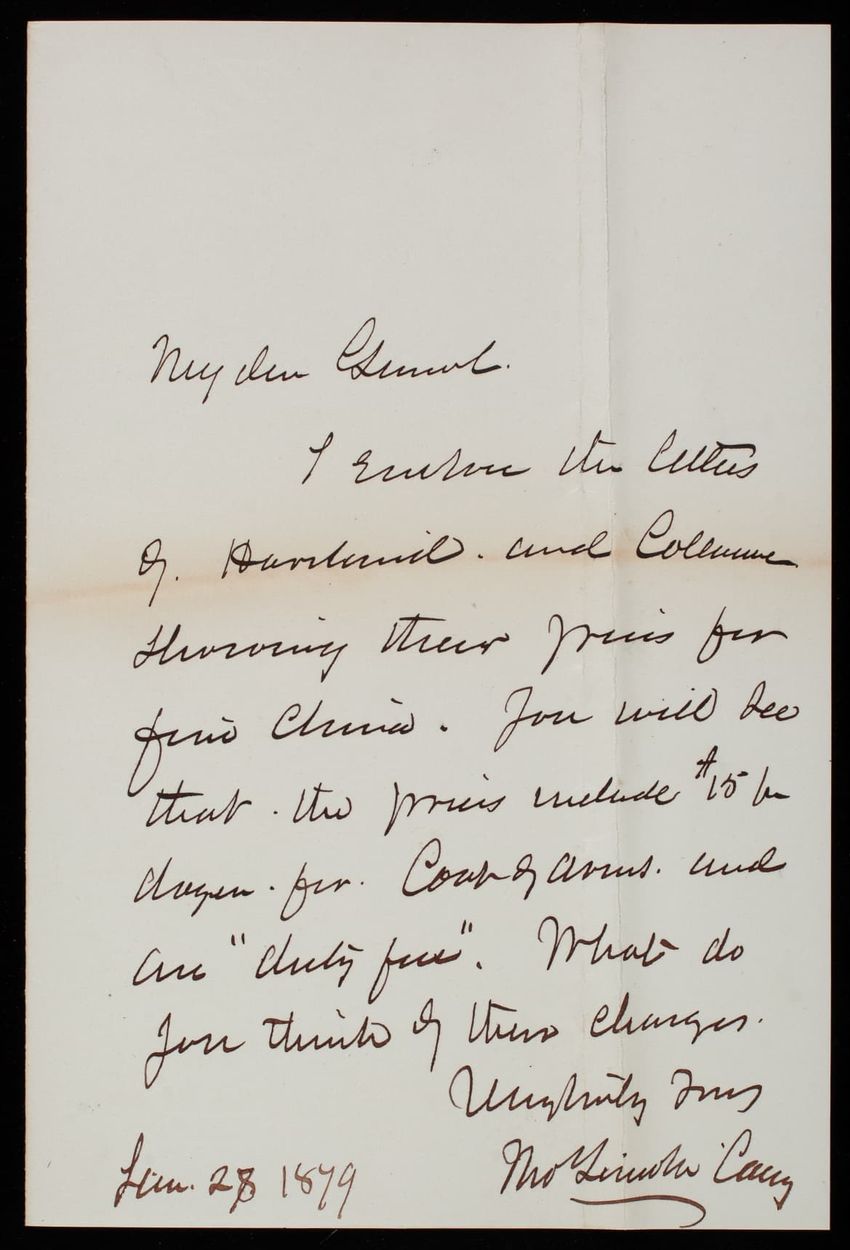 My dear General.
I enclose the letters
of. Haviland. and Collamore
showing their prices for
fine China. You will see
that. the prices include $15 per
dozen. for. Coat of arms. and
are "duty free". What do
you think of these charges.
Very truly yours
Thos Lincoln Casey
Jan. 28 1879